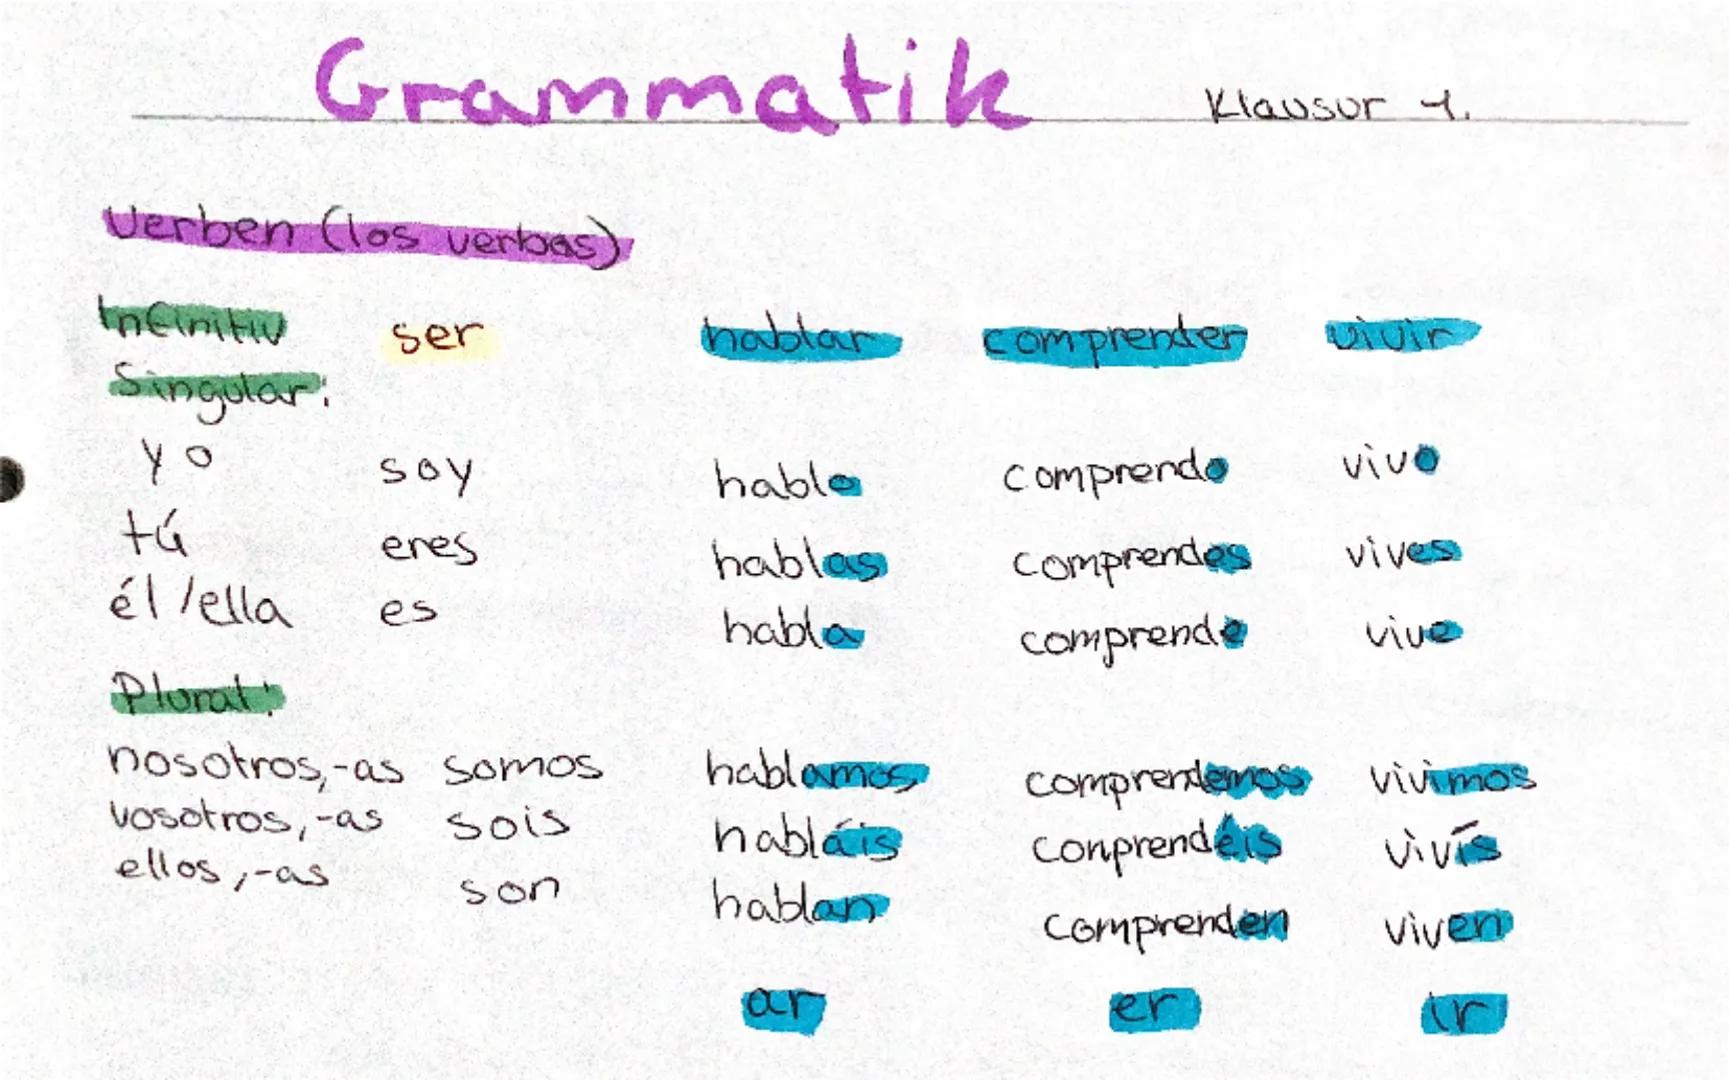 Grammatik Klausur 1.
Verben (los verbos)
Infinitiv ser hablar comprender vivir
Singular:
yo soy hablo comprendo vivo
tú eres hablas comprendes vives
él/ella es habla comprende vive
Plural:
nosotros,-as somos hablamos comprendemos vivimos
vosotros,-as sois habláis conprendéis vivís
ellos,-as son hablan comprenden viven
ar er ir